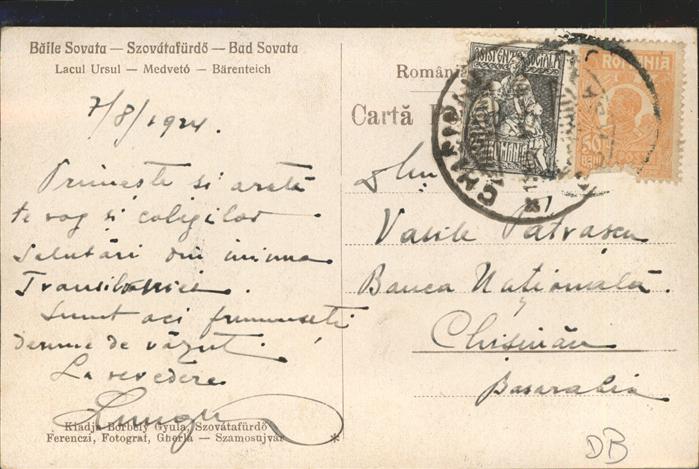 Băile Sovata — Szovátafürdő — Bad Sovata
Lacul Ursul — Medvető — Bärenteich
7/8/1924.
Primește si arată
te rog si colegilor
salutări din inima
Transilvaniei.
Sunt aci frumuseți
demne de văzut.
La revedere
Lungu
Kiadja Borbély Gyula, Szovátafürdő
Ferenczi, Fotograf, Gherla — Szamosujvár
*
ASISTENȚA SOCIALA
ROMANIA
50 BANI
Români
Cartă
Dlui
Vasile Patrașcu
Banca Națională.
Chișinău
Basarabia
DB